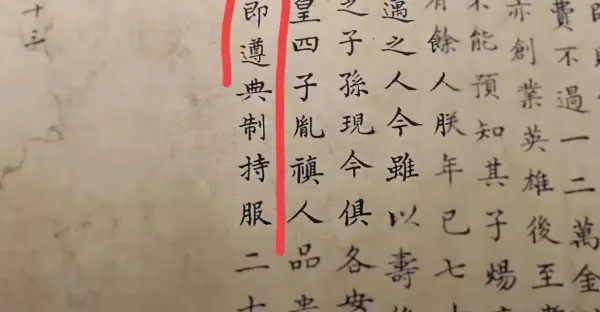 費不過一二萬金
亦創業英雄後至
不能預知其子煬
有餘人朕年已七十
遇之人今雖以壽
之子孫現今俱各安
皇四子胤禛人品貴
即遵典制持服二十
十三